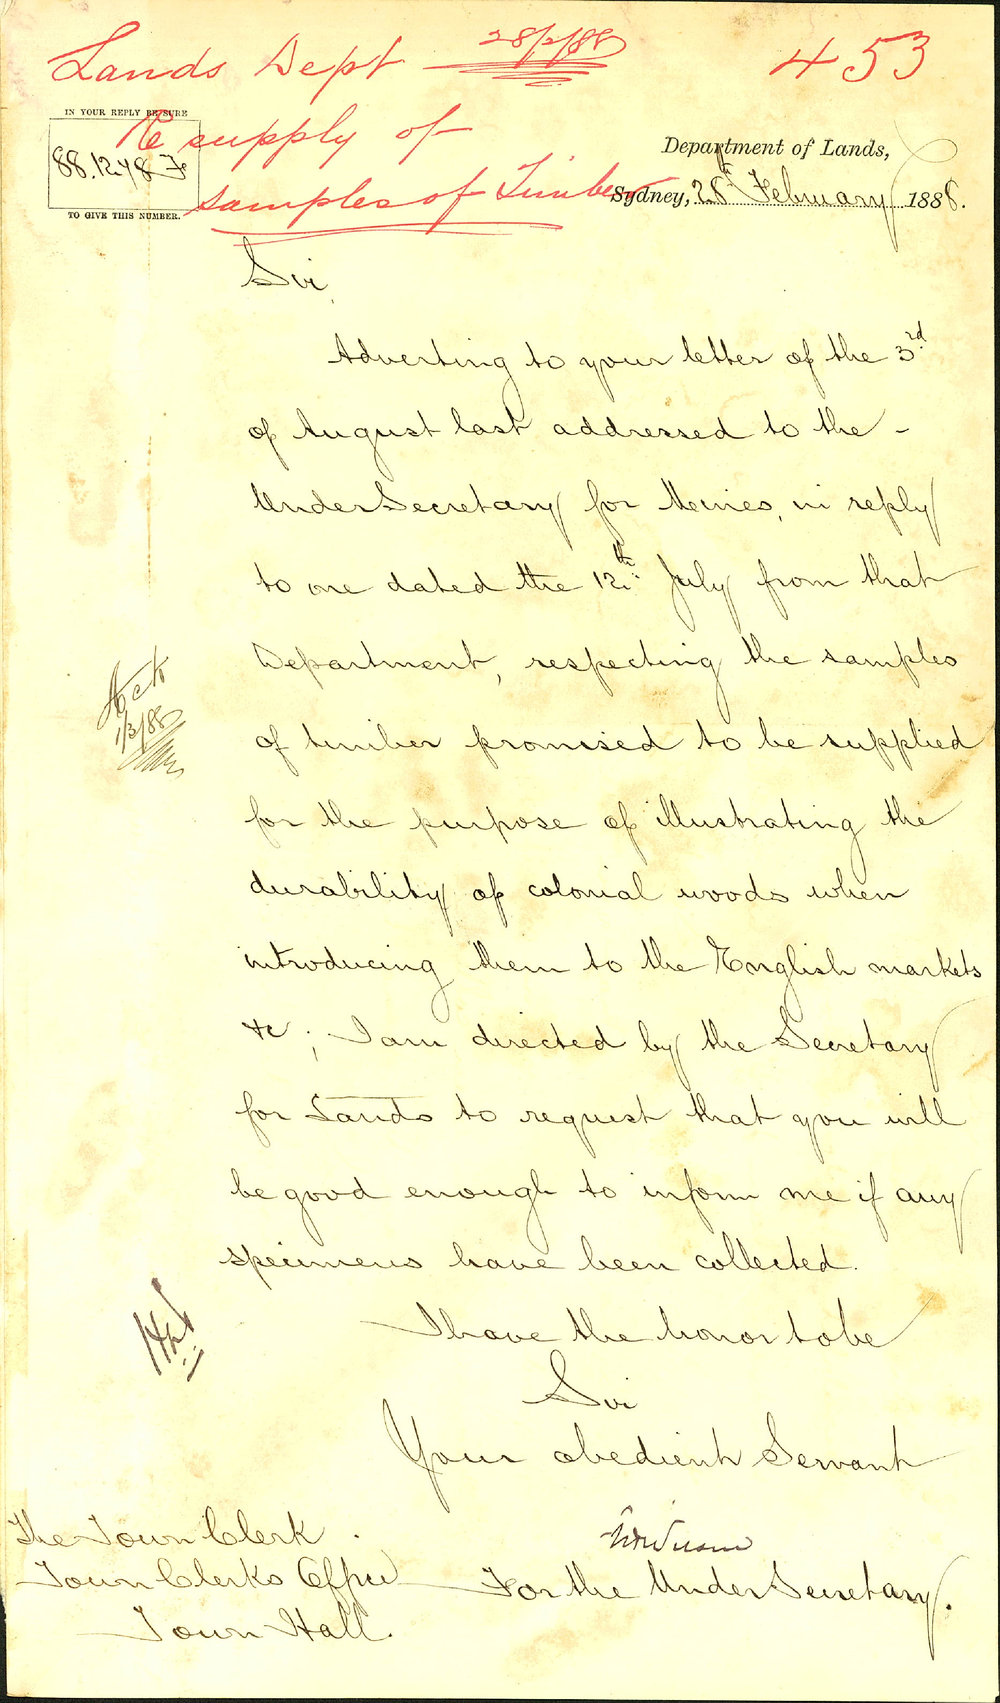 Lands Dept 28/2/88
453
Re supply of
samples of Timber
IN YOUR REPLY BE SURE
88.1248 F
TO GIVE THIS NUMBER.
Department of Lands,
Sydney, 28th February 1888.
Sir,
Adverting to your letter of the 3rd
of August last addressed to the -
Under Secretary for Mines, in reply
to one dated the 12th July from that
Department, respecting the samples
of timber promised to be supplied
for the purpose of illustrating the
durability of colonial woods when
introducing them to the English markets
&c; I am directed by the Secretary
for Lands to request that you will
be good enough to inform me if any
specimens have been collected.
Ack
1/3/88
I have the honor to be
Sir
Your obedient Servant
For the Under Secretary.
The Town Clerk
Town Clerks Office
Town Hall.